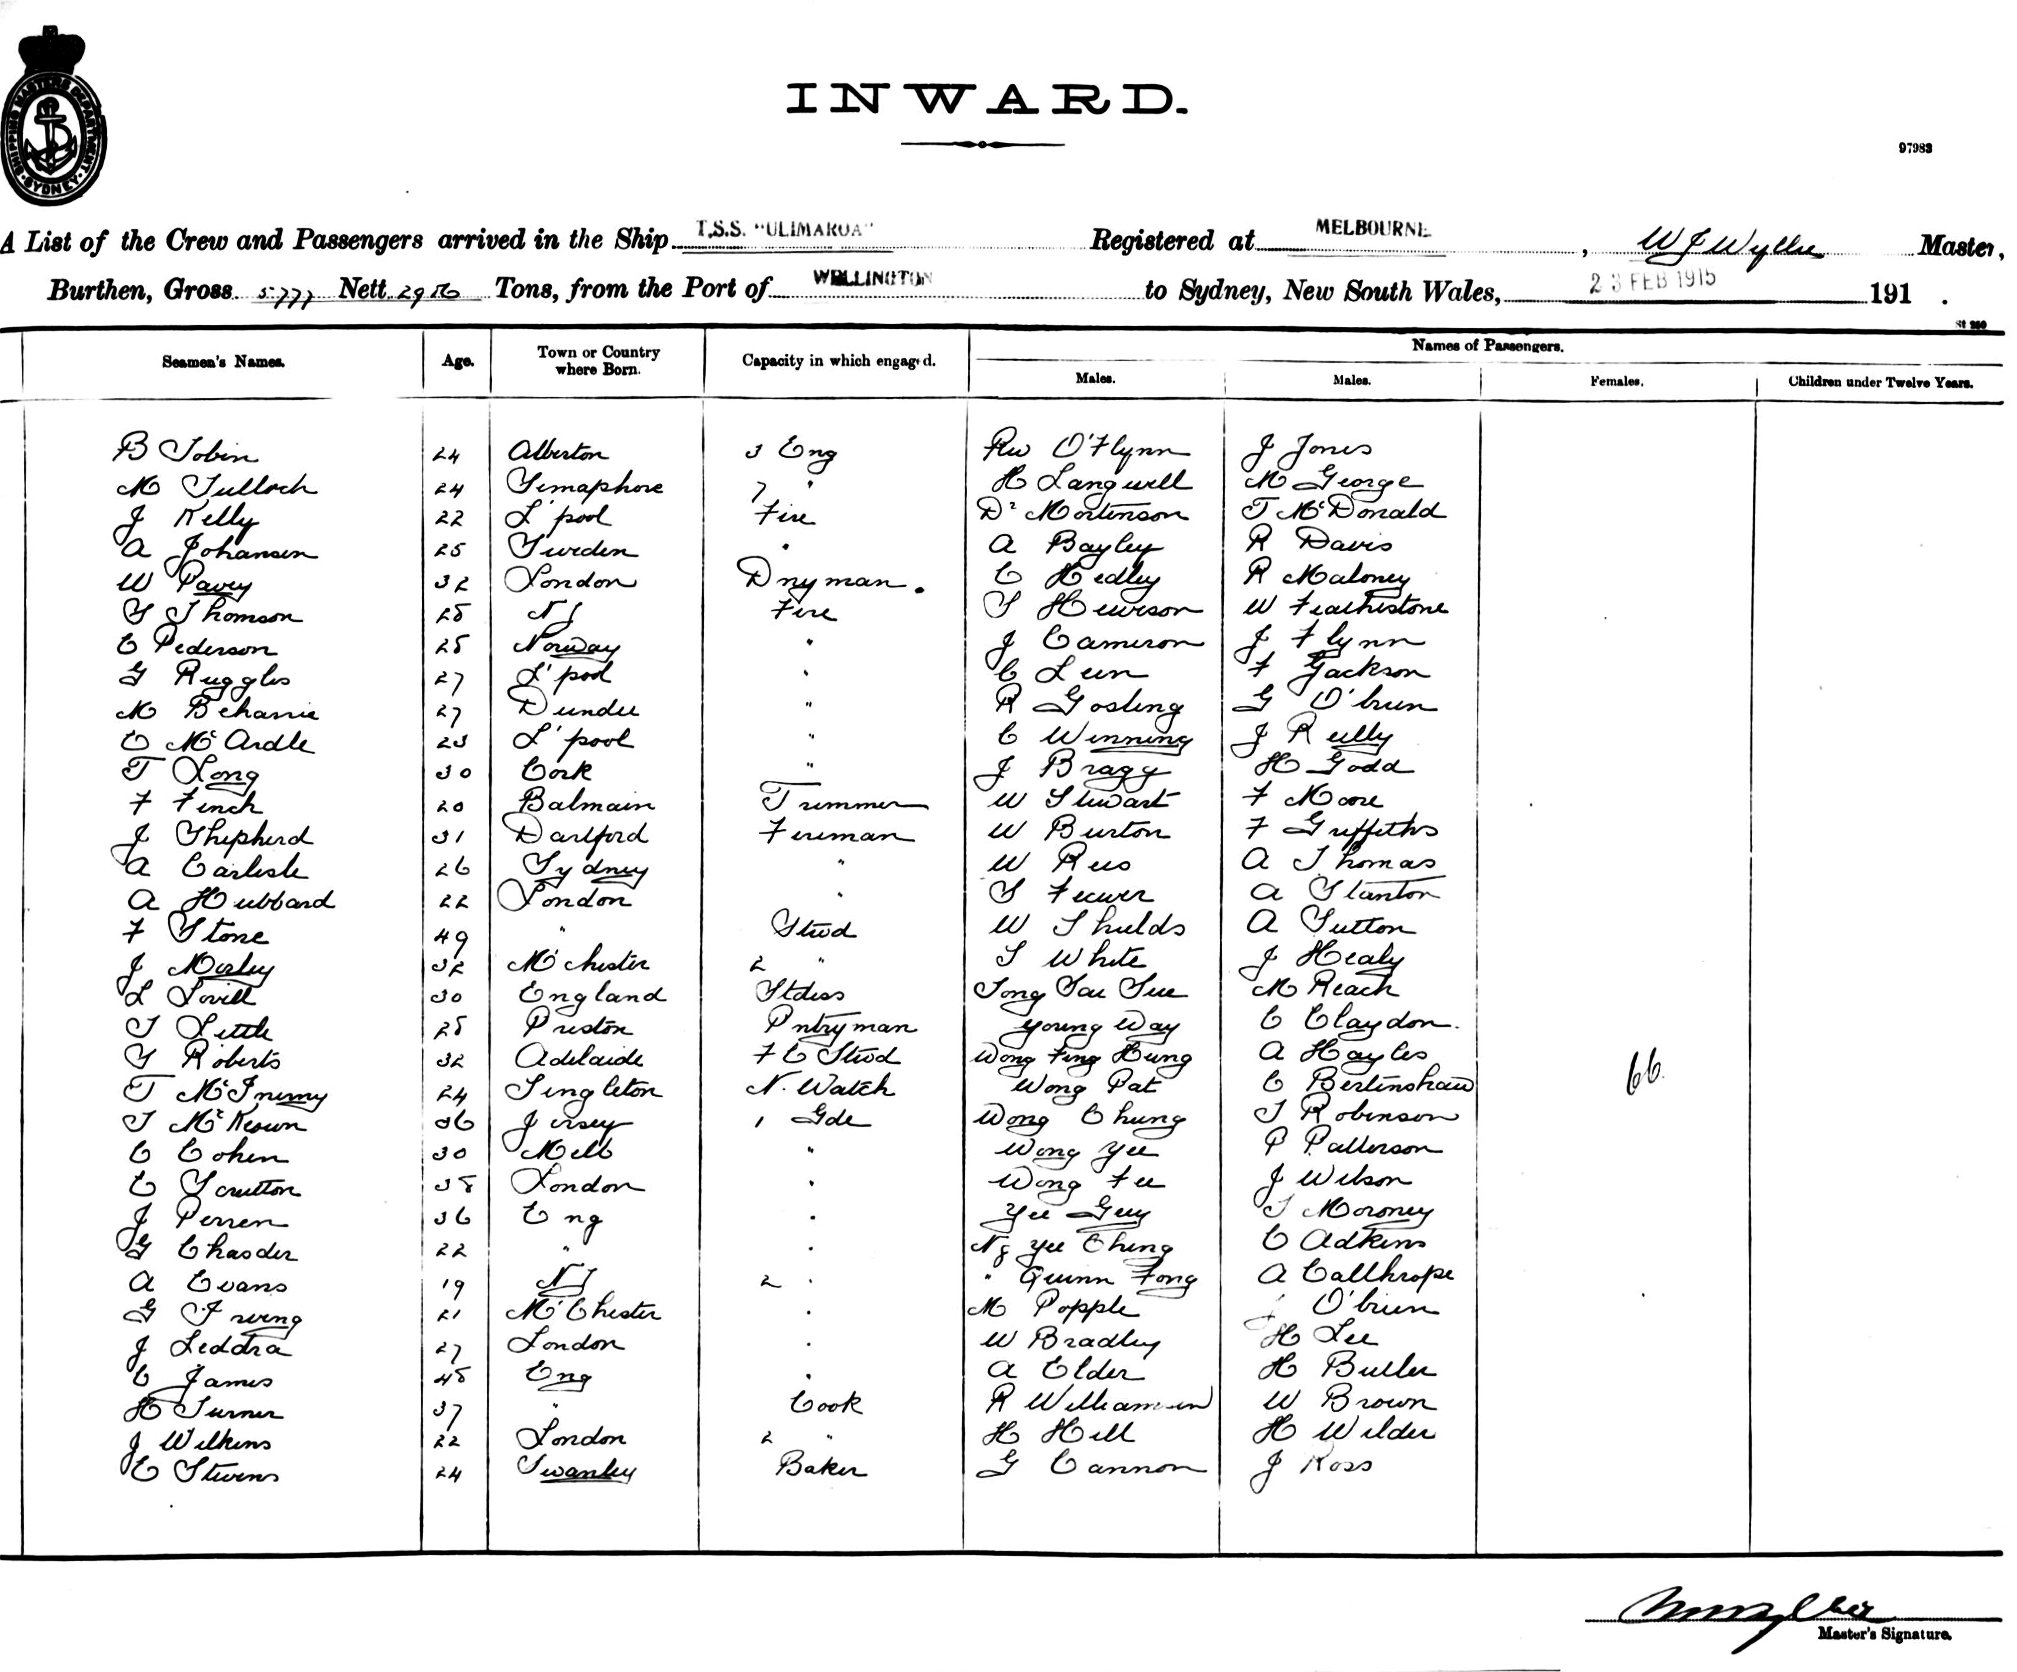 SHIPPING MASTERS DEPARTMENT SYDNEY
INWARD.
97983
A List of the Crew and Passengers arrived in the Ship T.S.S. "ULIMAROA" Registered at MELBOURNE, W J Wyllie Master,
Burthen, Gross 5777 Nett Tons, from the Port of WELLINGTON to Sydney, New South Wales, 23 FEB 1915 191 .
St 260
Seamen's Names. Age. Town or Country where Born. Capacity in which engaged. Names of Passengers.
Males. Males. Females. Children under Twelve Years.
B Tobin 24 Alberton 3 Eng Rev O'Flynn J Jones
M Tulloch 24 Semaphore 7 " H Langwell M George
J Kelly 22 L'pool Fire Dr Mortenson T McDonald
A Johansen 25 Sweden " A Bayley R Davis
W Pavey 32 London Dnyman. C Hedley R Maloney
S Thomson 28 Fire S Hewson W Featherstone
C Pederson 28 Norway " J Cameron J Flynn
G Ruggles 27 L'pool " C Leen F Jackson
M Beharrie 27 Dundee " R Gosling G O'brien
C McArdle 23 L'pool " C Winning J Reilly
T Long 30 Cork " J Bragg H Godd
F Finch 20 Balmain Trimmer W Stewart F Moore
J Shepherd 31 Dartford Fireman W Burton F Griffiths
A Carlisle 26 Sydney " W Rees A Thomas
A Hubbard 22 London " S A Stanton
F Stone 49 " Stwd W Shields A Sutton
J Morley 32 M'chester 2 " S White J Healy
L Lovell 30 England Stdess Tong Sai Sue M Reach
T Little 28 Preston Pntryman Young Way C Claydon.
S Roberts 32 Adelaide F C Stwd Wong Fing Hung A Hayles
T McInerny 24 Singleton N. Watch Wong Pat C Bertinshaw
T McKeown 36 Jersey 1 Gde Wong Chung T Robinson
C Cohen 30 Melb " Wong Yee P Patterson
E Scrutton 38 London " Wong Fee J Wilson
J Perren 36 Eng " Yee Guy T Moroney
G Chasder 22 " " Ng Yee Ching C Adkins
A Evans 19 2 " " Quinn Fong A Callhrope
G Irving 21 M'Chester " M Popple J O'brien
J Leddra 27 London " W Bradley H Lee
C James 48 Eng " A Elder H Butler
H Turner 37 " Cook R Williamson W Brown
J Wilkins 22 London 2 " H Hill H Wilder
C Stevens 24 Swanley Baker G Cannon J Ross
66
Master's Signature.